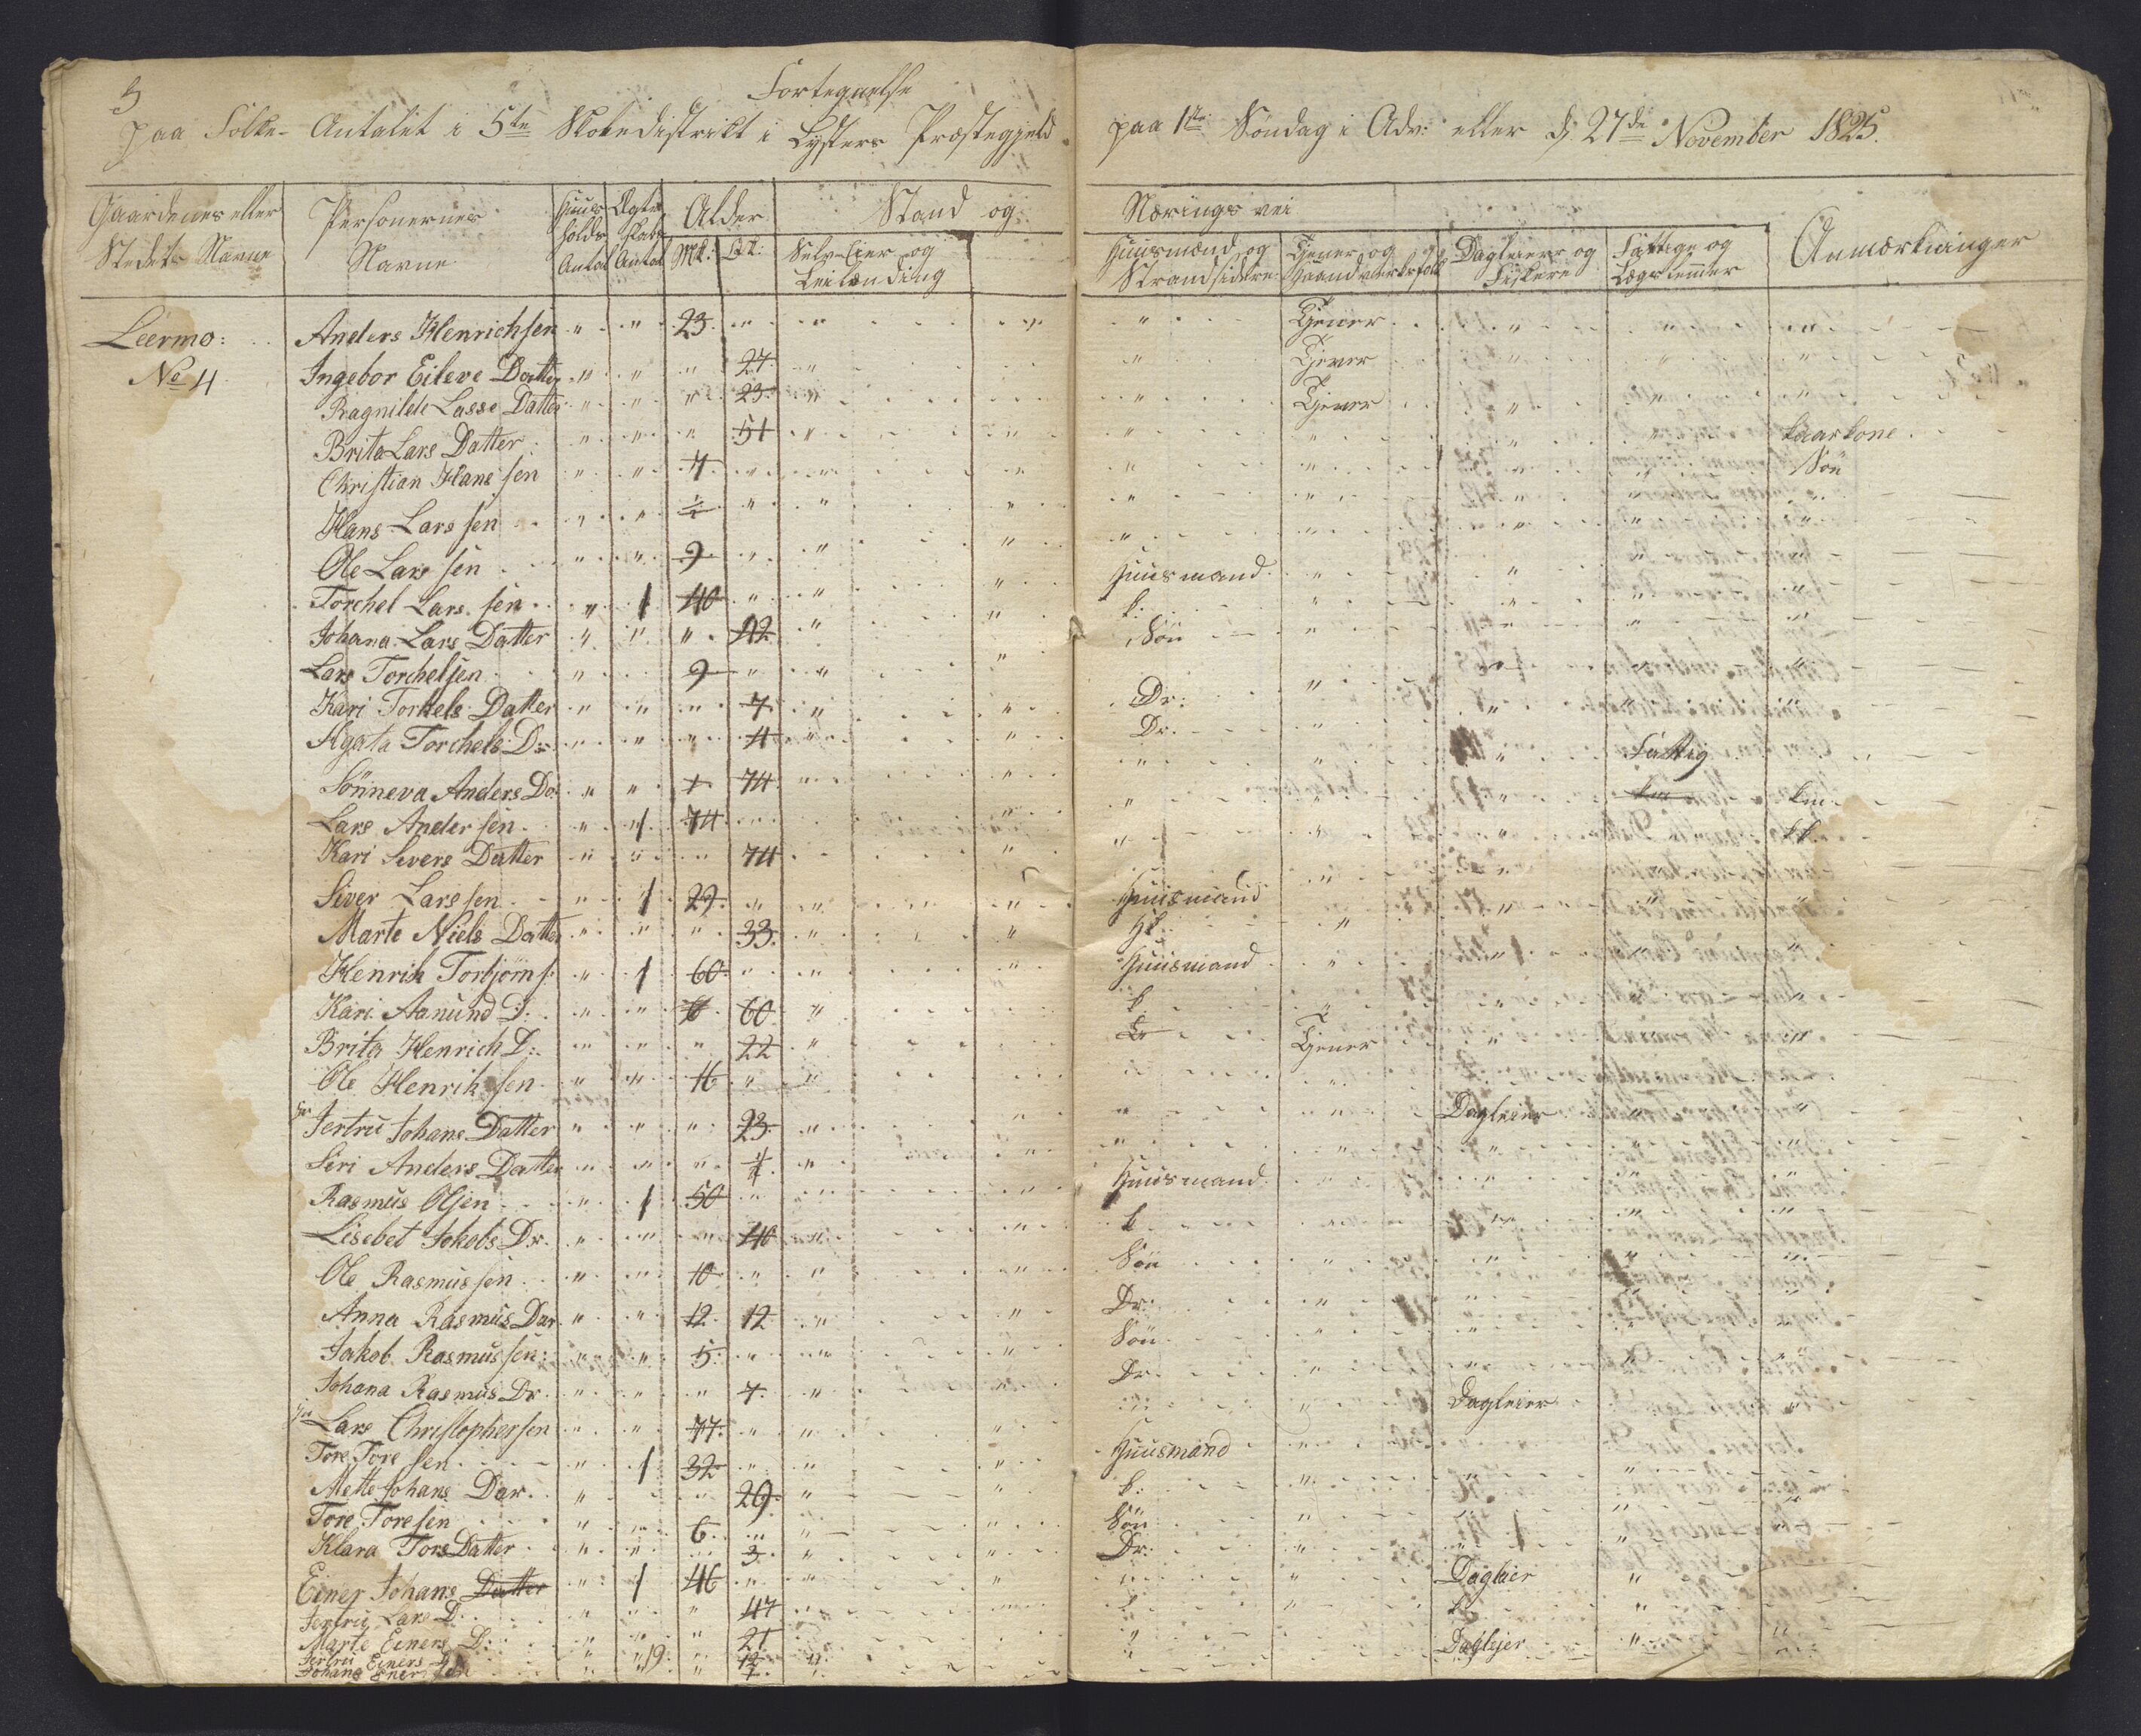 3
Fortegnelse
paa Folke- Antalet i 5te Skoledistrikt i Lysters Præstegjeld paa 1ste Søndag i Adv: eller d: 27de November 1825.
Gaardenes eller Stedets Navne
Personernes Navne
Huus holds Antal
Ægte skabs Antal
Alder
Mk: Qk:
Stand og Nærings vei
Selv-Eier og Leilænding
Huusmænd og Strandsidere
Tjener og Haandverksfolk
Dagleiere og Fiskere
Fattige og Lægslemmer
Anmærkninger
Leermo: Anders Henrichsen " " 23 " " Tjener
No 4 Ingebor Eileve Datter " " " 27 " Tjener
Ragnilde Lasse Datter " " " 23 " Tjener
Brita Lars Datter " " " 51 " kaarkone
Christian Hans sen " " 7 " " Søn
Hans Lars sen " " " "
Ole Lars sen " " 9 " "
Torchel Lars sen " 1 40 " " Huusmand
Johana Lars Datter " " " 42 " k:
Lars Torchelsen " 9 " " Søn
Kari Torkels Datter " " " 7 " Dr:
Agata Torchels Dr " " " 4 " Dr.
Sönneva Anders Dr " " 74 " Fattig
Lars Andersen " 1 74 km
Kari Sivers Datter " " " 74 kk
Siver Lars sen " 1 29 " " Huusmand
Marte Niels Datter " " " 33 " Hk
Henrik Torbjörns: " 1 60 " " Huusmand
Kari Aamund D: " " 60 " k
Brita Henrich D: " " " 22 " Tjener
Ole Henriksen " " 16 " "
Jertru Johans Datter " " " 23 " Dagleier
Siri Anders Datter " " " "
Rasmus Olsen " 1 50 " " Huusmand
Lisebet Jokobs Dr. " " " 40 " k
Ole Rasmussen " " 10 " " Søn
Anna Rasmus Dar " " 12 12 " Dr:
Jakob Rasmussen: " " 5 " " Søn
Johana Rasmus Dr. " " " 7 " Dr.
Lars Christophersen " " 77 " " Dagleier
Tore Tore sen " 1 32 " " Huusmand
Mette Johans Dar. " " 29 " k:
Tore Toresen " " 6 " " Søn
Klara Tors Datter " " 3 " Dr:
Einer Johans Datter " 1 46 " " Dagleier
Jertru Lars D: " " " 47 " k
Marte Einers D: " " " 21 " Daglejer
Jertru Einers " " 19 " 12 "
Johans Einersen